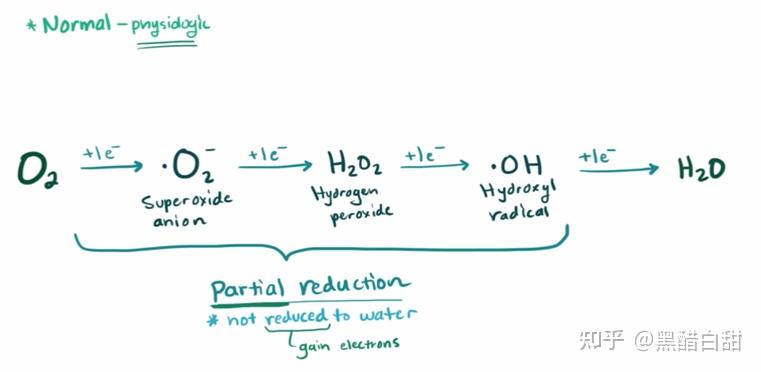 * Normal - physiologic
O₂ +1e⁻ ·O₂⁻ +1e⁻ H₂O₂ +1e⁻ ·OH +1e⁻ H₂O
Superoxide anion
Hydrogen peroxide
Hydroxyl radical
Partial reduction
* not reduced to water
gain electrons
知乎 @黑醋白甜